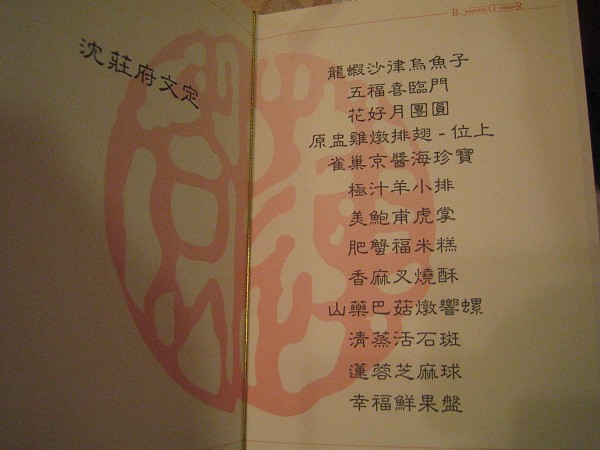 沈莊府文定
龍蝦沙律烏魚子
五福喜臨門
花好月團圓
原盅雞燉排翅-位上
雀巢京醬海珍寶
極汁羊小排
美鮑甫虎掌
肥蟹福米糕
香麻叉燒酥
山藥巴菇燉響螺
清蒸活石斑
蓮蓉芝麻球
幸福鮮果盤